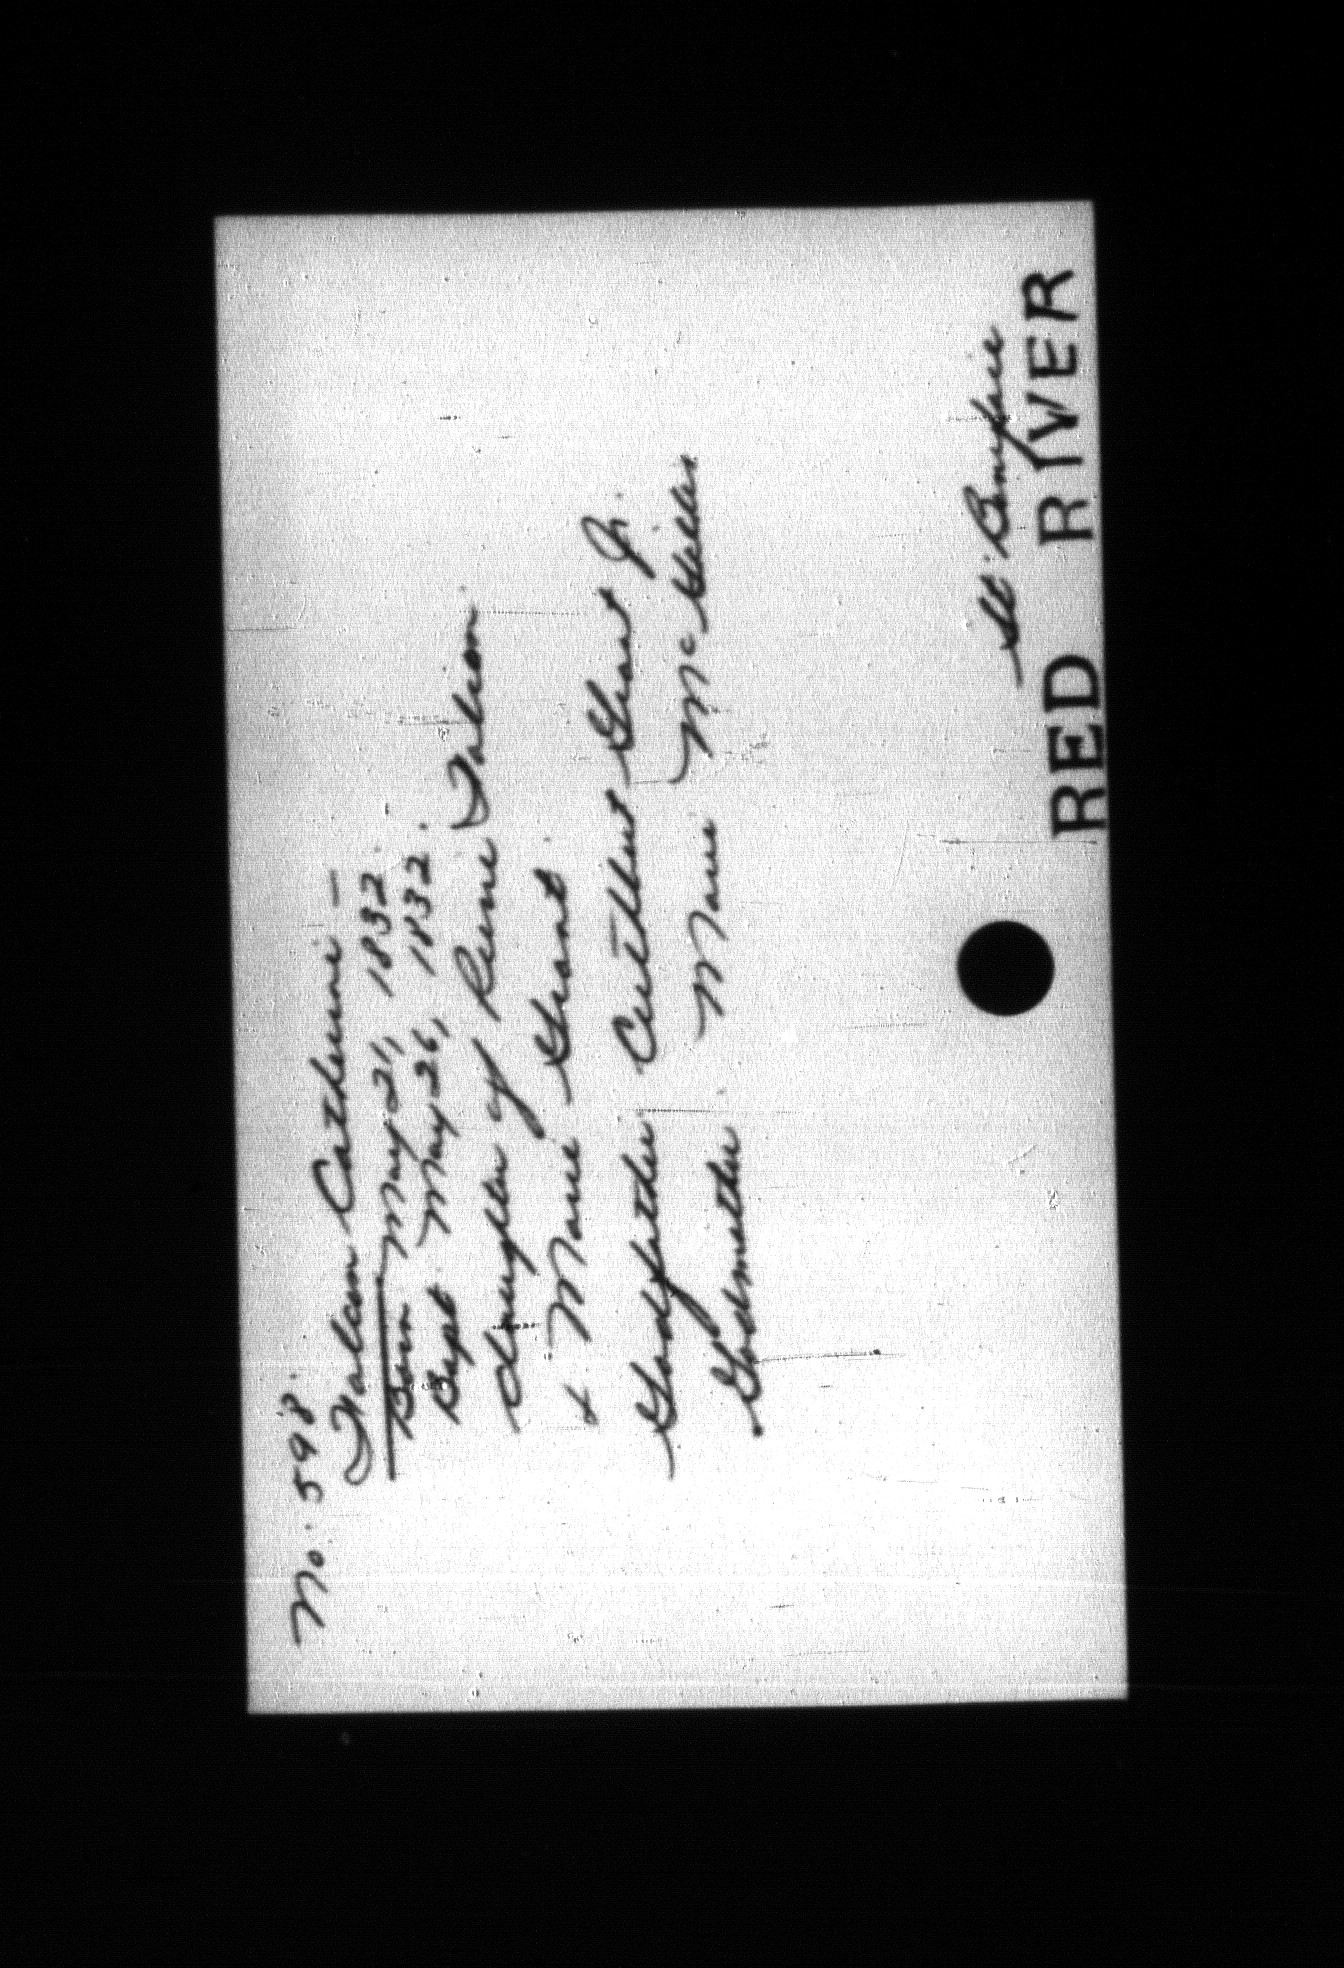 No. 598.
Falcon Catherine —
Born May 21, 1832.
Bapt. May 26, 1832.
daughter of Pierre Falcon
& Marie Grant.
Godfather Cuthbert Grant Jr.
Godmother Marie McGillis
St. Boniface
RED RIVER